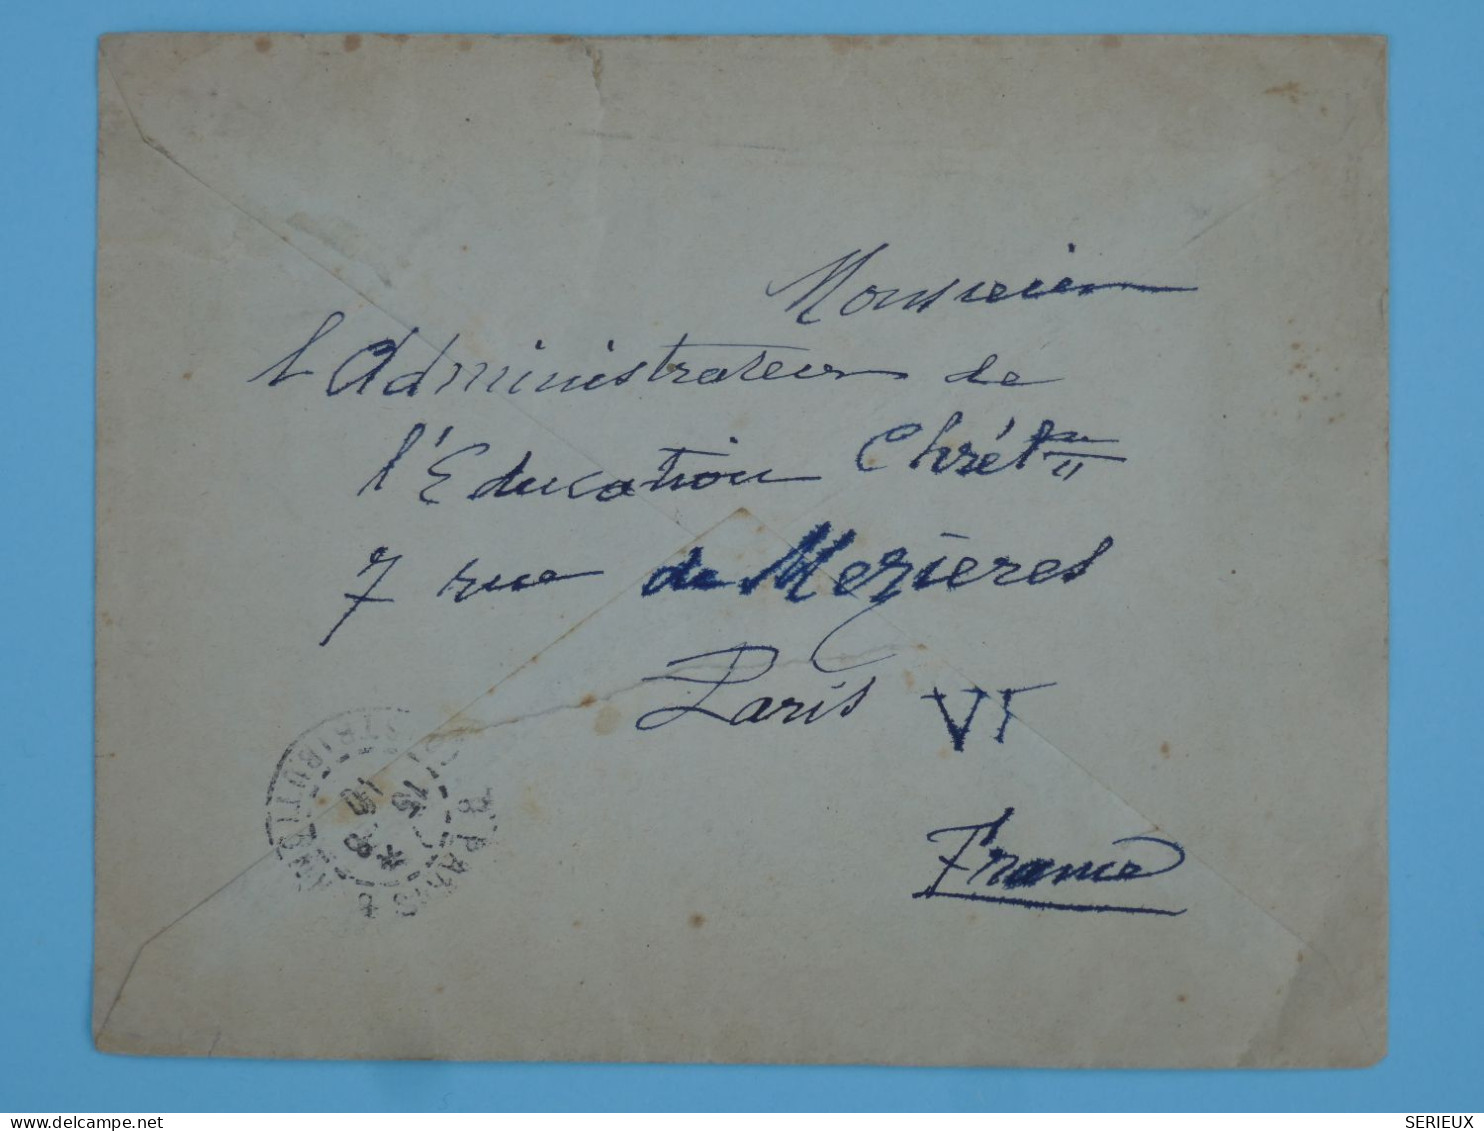 Monsieur
l'Administrateur de
l'Education Chrét^ne
7 rue de Mezieres
Paris VI
France
PARIS
DISTRIBUTION
15
10
delcampe.net
SERIEUX